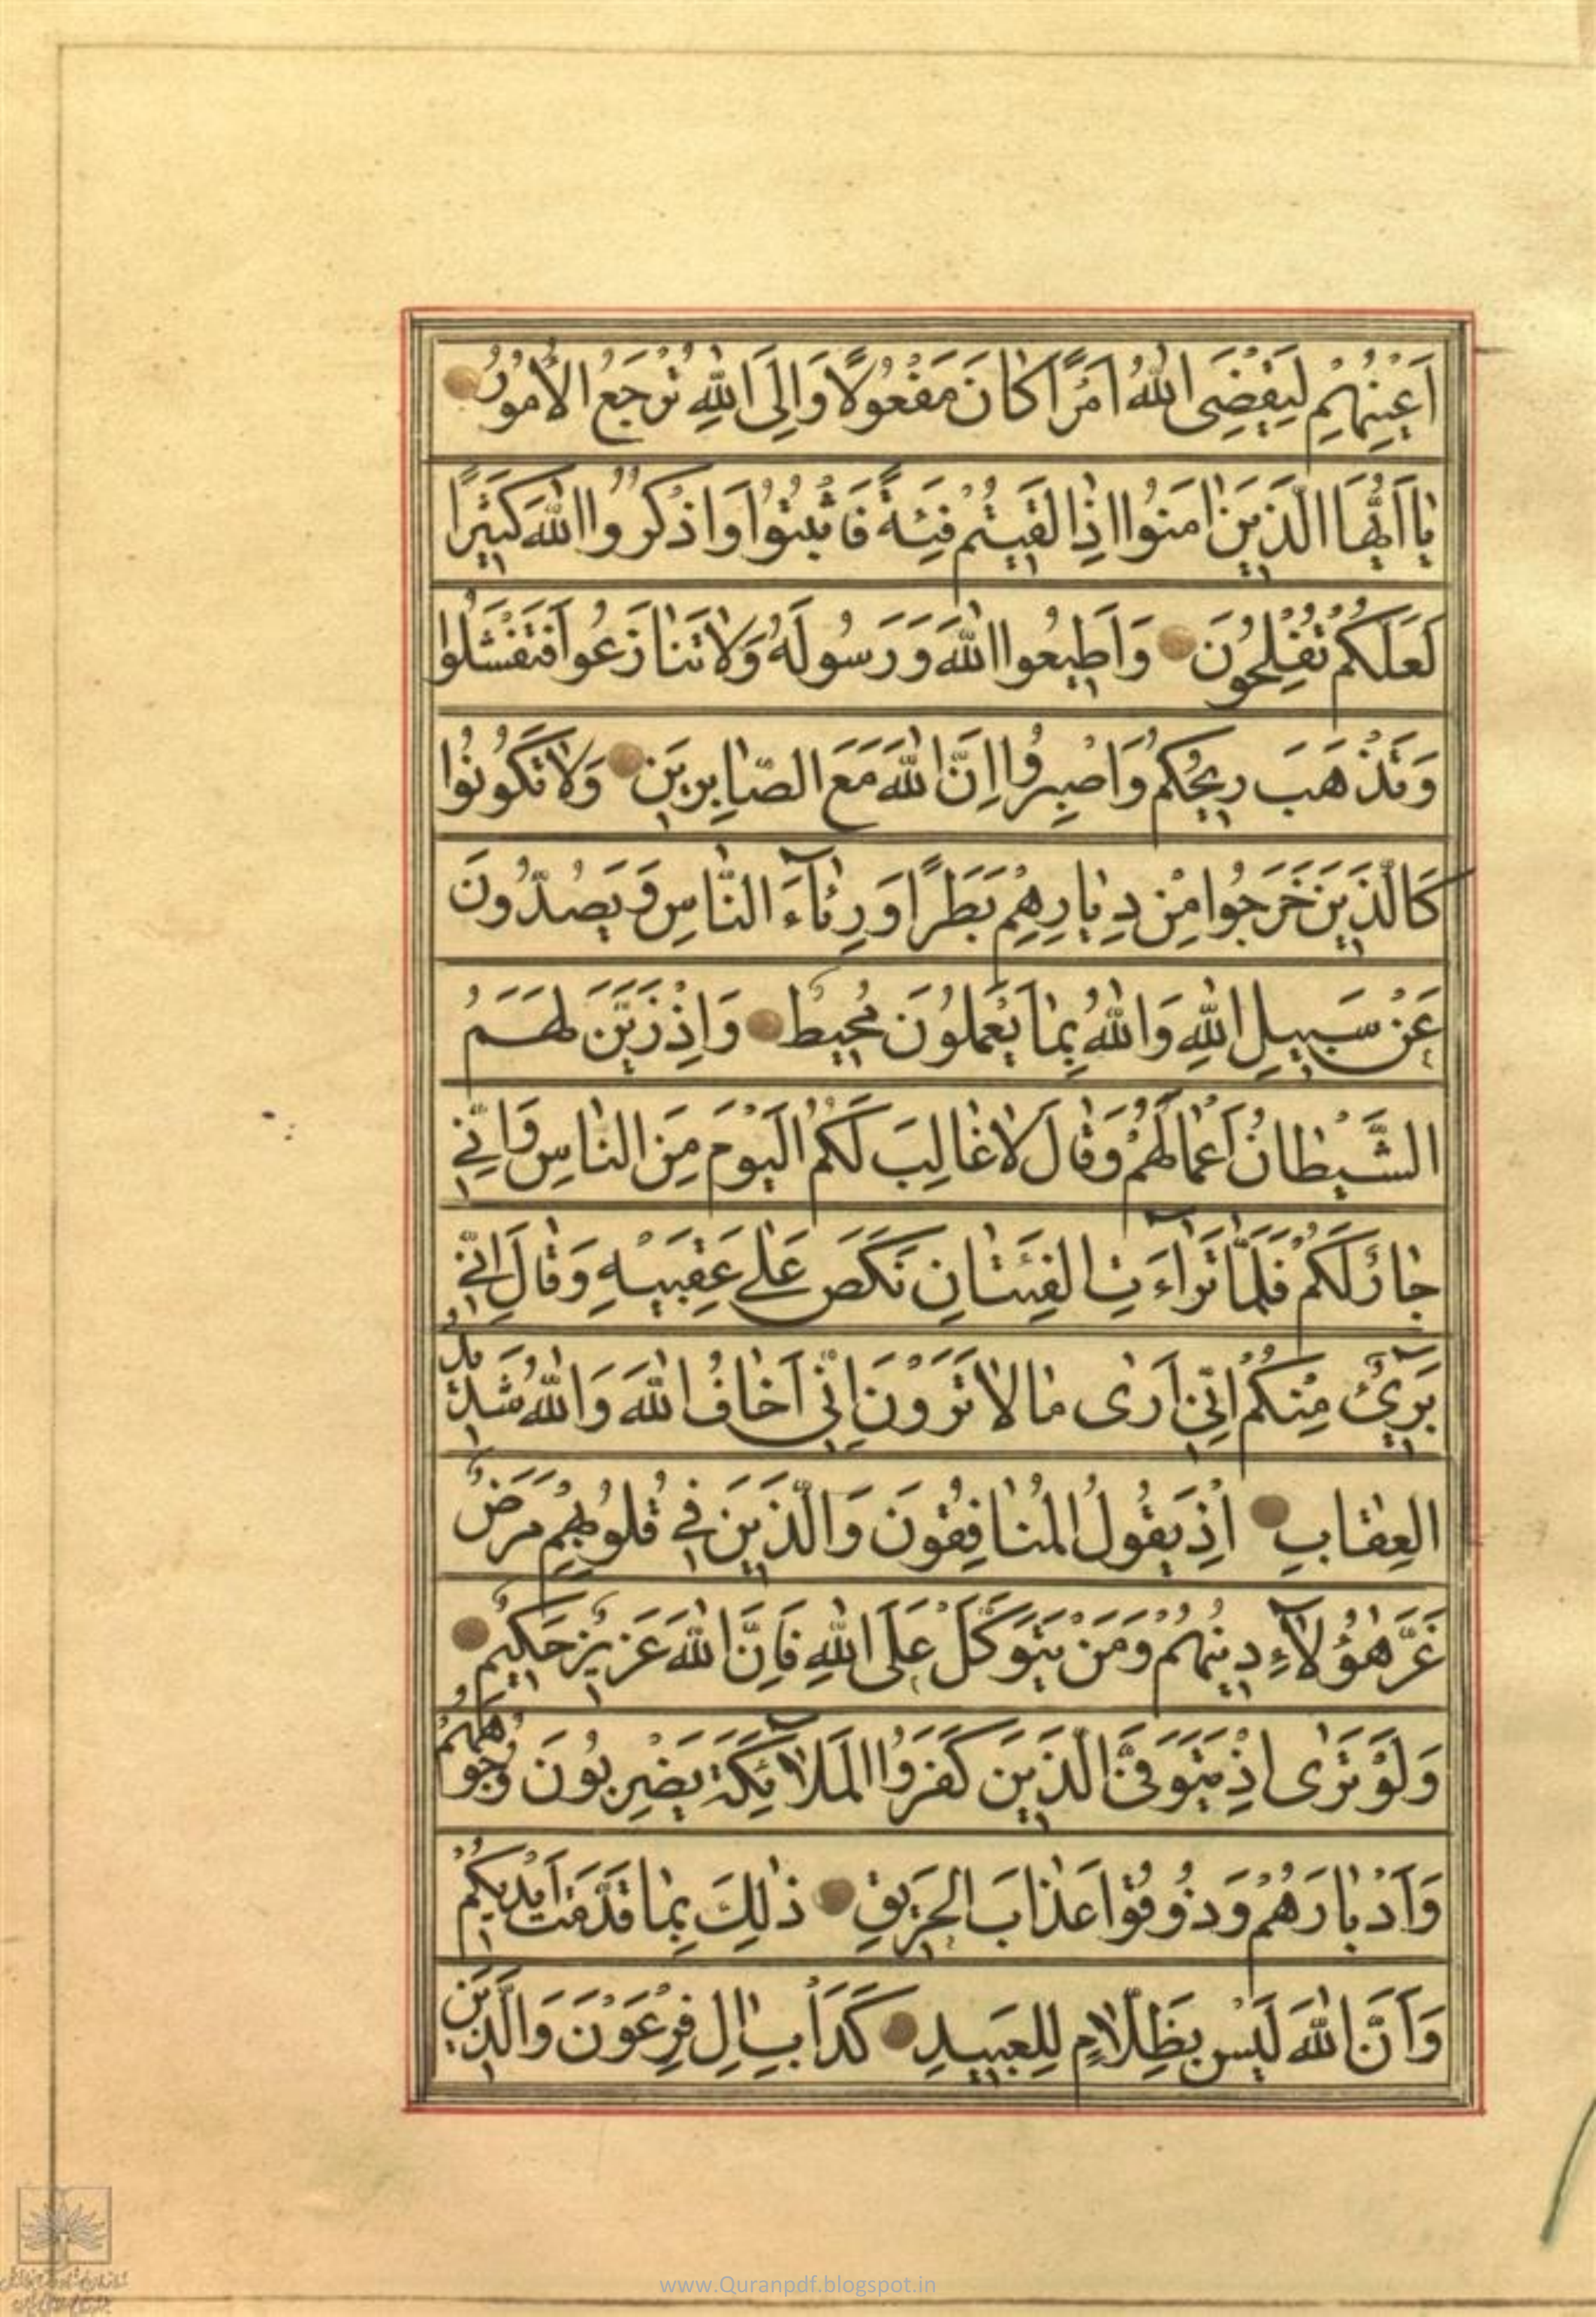 اَعْيُنِهِمْ لِيَقْضِىَ اللهُ اَمْرًا كانَ مَفْعُولًا وَاِلَى اللهِ تُرْجَعُ الْاُمُورُ
يا اَيُّهَا الَّذينَ امَنُوا اِذا لَقيتُمْ فِئَةً فَاثْبُتُوا وَاذْكُرُوا اللهَ كَثيرًا
لَعَلَّكُمْ تُفْلِحُونَ وَاَطيعُوا اللهَ وَرَسُولَهُ وَلا تَنازَعُوا فَتَفْشَلُوا
وَتَذْهَبَ ريحُكُمْ وَاصْبِرُوا اِنَّ اللهَ مَعَ الصّابِرينَ وَلا تَكُونُوا
كَالَّذينَ خَرَجُوا مِنْ دِيارِهِمْ بَطَرًا وَرِئآءَ النّاسِ وَيَصُدُّونَ
عَنْ سَبيلِ اللهِ وَاللهُ بِما يَعْمَلُونَ مُحيطٌ وَاِذْ زَيَّنَ لَهُمُ
الشَّيْطانُ اَعْمالَهُمْ وَقالَ لا غالِبَ لَكُمُ الْيَوْمَ مِنَ النّاسِ وَاِنّي
جارٌ لَكُمْ فَلَمّا تَرآءَتِ الْفِئَتانِ نَكَصَ عَلى عَقِبَيْهِ وَقالَ اِنّي
بَرىءٌ مِنْكُمْ اِنّي اَرى ما لا تَرَوْنَ اِنّي اَخافُ اللهَ وَاللهُ شَديدُ
الْعِقابِ اِذْ يَقُولُ الْمُنافِقُونَ وَالَّذينَ في قُلُوبِهِمْ مَرَضٌ
غَرَّ هؤُلآءِ دينُهُمْ وَمَنْ يَتَوَكَّلْ عَلَى اللهِ فَاِنَّ اللهَ عَزيزٌ حَكيمٌ
وَلَوْ تَرى اِذْ يَتَوَفَّى الَّذينَ كَفَرُوا الْمَلآئِكَةُ يَضْرِبُونَ وُجُوهَهُمْ
وَاَدْبارَهُمْ وَذُوقُوا عَذابَ الْحَريقِ ذلِكَ بِما قَدَّمَتْ اَيْديكُمْ
وَاَنَّ اللهَ لَيْسَ بِظَلّامٍ لِلْعَبيدِ كَدَاْبِ الِ فِرْعَوْنَ وَالَّذينَ
www.Quranpdf.blogspot.in